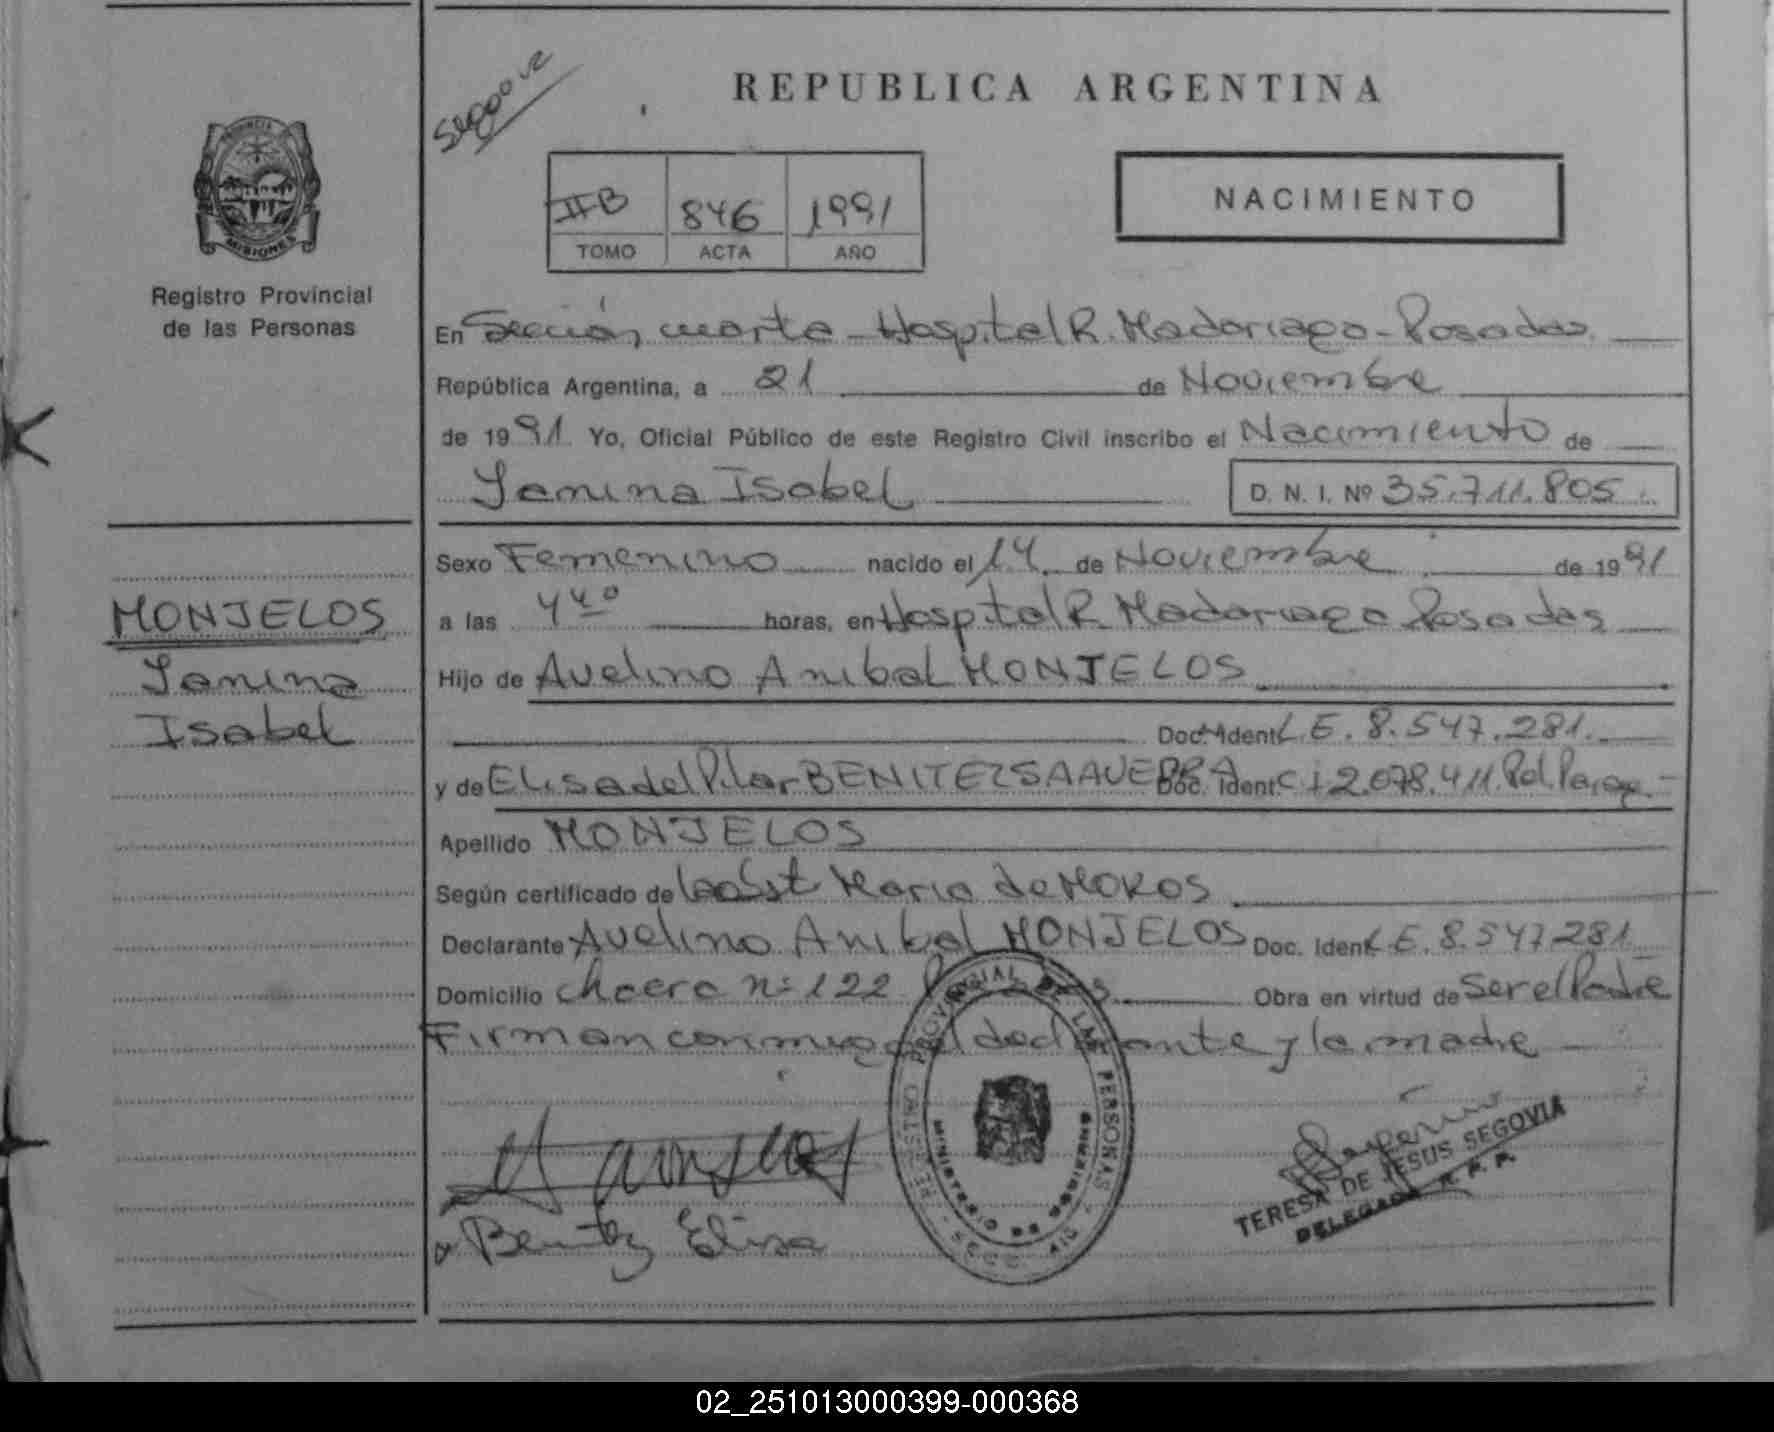 Segovia
REPUBLICA ARGENTINA
II B 846 1991
TOMO ACTA AÑO
NACIMIENTO
PROVINCIA
MISIONES
Registro Provincial
de las Personas
En Sección cuarta - Hospital R. Madariaga - Posadas
República Argentina, a 21 de Noviembre
de 1991. Yo, Oficial Público de este Registro Civil inscribo el Nacimiento de
Yanina Isabel D. N. I. Nº 35.711.805
MONJELOS
Yanina
Isabel
Sexo Femenino nacido el 14 de Noviembre de 1991
a las 4 40 horas, en Hospital R Madariaga Posadas
Hijo de Avelino Anibal MONJELOS
Doc. Ident. L.E. 8.547.281.
y de Elisa del Pilar BENITEZ SAAVEDRA Doc. Ident. C i 2.078.411. Pol. Parag.
Apellido MONJELOS
Según certificado de la obst Maria de MOROS
Declarante Avelino Anibal MONJELOS Doc. Ident. L.E. 8.547.281
Domicilio chacra nº 122 Posadas Obra en virtud de Ser el Padre
Firman conmigo el declarante y la madre
REGISTRO PROVINCIAL DE LAS PERSONAS
MINISTERIO DE GOBIERNO
SECC. 4ta
Benitez Elisa
TERESA DE JESUS SEGOVIA
DELEGADA R. P. P.
02_251013000399-000368